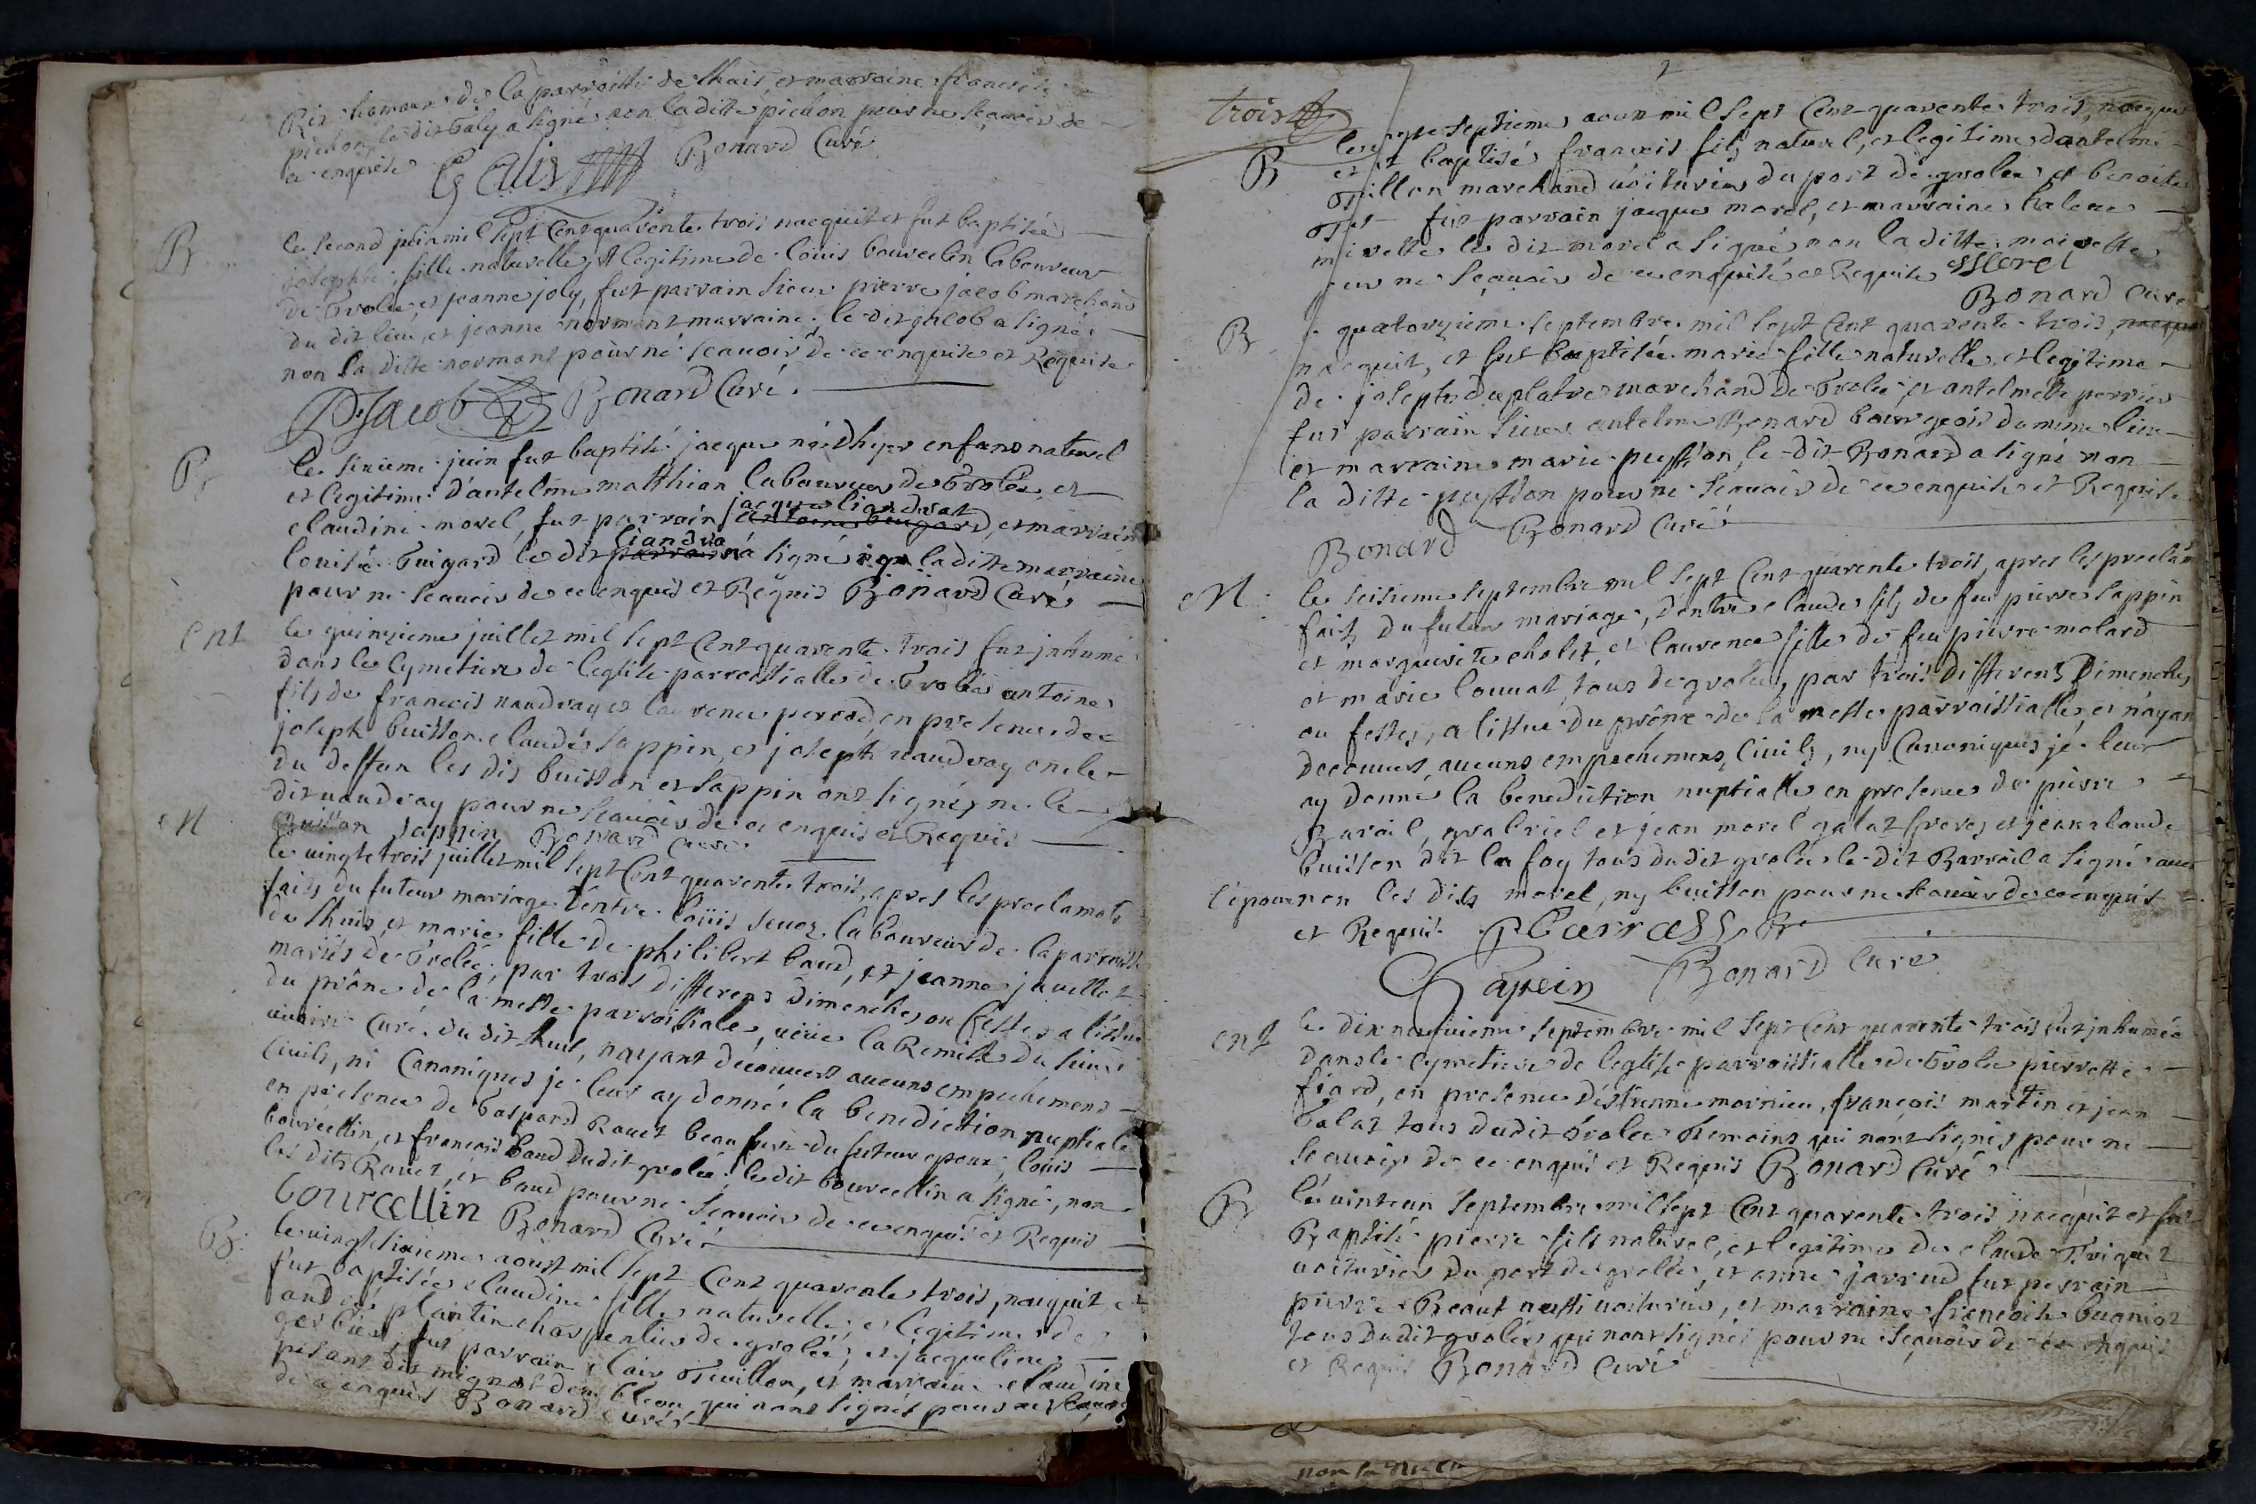 de la parroisse de lhuis, et marraine francoise
pichon, le dit Galy a signé non la ditte pichon pour ne scavoir de
ce enquise
Bonard Curé
B
le second juin mil sept cent quarente trois nacquit et fut baptisée
josephte, fille naturelle et legitime de louis bourcelin laboureur
de Grolée, et jeanne joly, fut parrain sieur pierre jacob marchand
du dit lieu, et jeanne normant marraine. le dit jacob a signé
non la ditte normant pour ne scauoir de ce enquise et Requise
P Jacob Bonard Curé.
B
le sixieme juin fut baptisé jacque né dhyer enfant naturel
et legitime d'antelme matthian laboureur de Grolée, et
claudine morel, fut parrain jacque liandrat, et marraine
louise Guigard le dit liandra a signé non la ditte marraine
pour ne scauoir de ce enquis et Requis Bonard Curé
Ent
le quinzieme juillet mil sept cent quarente trois fut jnhumé
dans le cymetiere de leglise parroissialle de Grolée antoine
fils de francois naudray et laurence perrod, en presence de
joseph buisson claude sappin, et joseph naudray oncle
du deffun les dis buisson et sappin ont signéz ne le
dit naudray pour ne scauoir de ce enquis et Requis
Buisson sappin Bonard curé.
M
le vingte trois juillet mil sept cent quarente trois, apres les proclamats
faits du futeur mariage d'entre louis seuoz laboureur de la parroisse
de lhuis, et marie fille de philibert baud, et jeanne juvettet
mariés de Grolée, par trois differens Dimenches ou festes a lissue
du prône de la messe parroissiale, veüe la Remise du sieur
curé du dit lhuis, nayant decouuert aucuns empechemens
civils, ni Canoniques je leur ay donné la benediction nuptiale
en presence de Gaspard Rauet beau frere du futeur epoux, louis
bourcellin, et francois baud dudit grolée, le dit bourcellin a signé, non
les dits Rauet, et baud pour ne scauoir de ce enquis et Requis
bourcellin Bonard Curé
B
le vingt sixieme aoust mil sept cent quarente trois, naquit, et
fut baptisée claudine fille naturelle, et legitime de
andré plantin charpentier de grolée, et jacqueline
gerbier fut parrain clair Teuillon, et marraine claudine
pesant dit mignot qui nont signés pour ne scauoir
de ce enquis Bonard curé
2
trois
B
septieme aoust mil sept cent quarente trois, nacquit
et baptisé françois fils naturel, et legitime dantelme
Teillon marchand voiturier du port de grolée et benoite
fut parrain jacque morel, et marraine
le dit morel a signé, non la ditte
pour ne scauoir de ce enquise et Requise Morel
Bonard Curé
B
quatorzieme septembre mil sept cent quarente trois,
nacquit, et fut baptisée marie fille naturelle, et legitime
de joseph duplatre marchand de Grolée, et antelmette perrier
fut parrain sieur antelme Bonard bourgeois du meme lieu
et marraine marie peysson, le dit Bonard a signé non
la ditte peysson pour ne scauoir de ce enquise et Requise
Bonard Bonard Curé
M
le seisieme septembre mil sept cent quarente trois, apres les proclam
faits du futeur mariage, d'entre claude fils de feu pierre sappin
et marguerite cholet, et laurence fille de feu pierre molard
et marie louuat, tous de grolée, par trois differens Dimenches
ou festes, a lissue du prône de la messe parroissialle, et nayant
decouuert aucuns empechemens, civils, ny Canoniques je leur
ay donné la benediction nuptialle en presence de pierre
Barail, grabriel et jean morel galat freres et jean claude
buisson dit la foy tous dudit grolée le dit Barrail a signé auec
l'epoux non les dits morel, ny buisson pour ne scauoir de ce enquis
et Requis.
Sapein Bonard Curé
Ent
le dix neuvieme septembre mil sept cent quarente trois fut jnhumée
dans le cymetiere de leglise parroissialle de Grolée pierrette
fiard, en presence d'estienne mornieu, françois martin et jean
Galat tous dudit Grolée temoins qui nont signés pour ne
scauoir de ce enquis et Requis Bonard Curé
B
le vint e un septembre mil sept cent quarente trois nacquit et fut
Baptisé pierre fils naturel, et legitime de claude Triquet
voiturier du port de grollée, et anne jarrud fut parrain
pierre Breaut aussi voiturier, et marraine françoise buoniot
tous dudit grolée qui nont signés pour ne scauoir de ce enquis
et Requis Bonard Curé